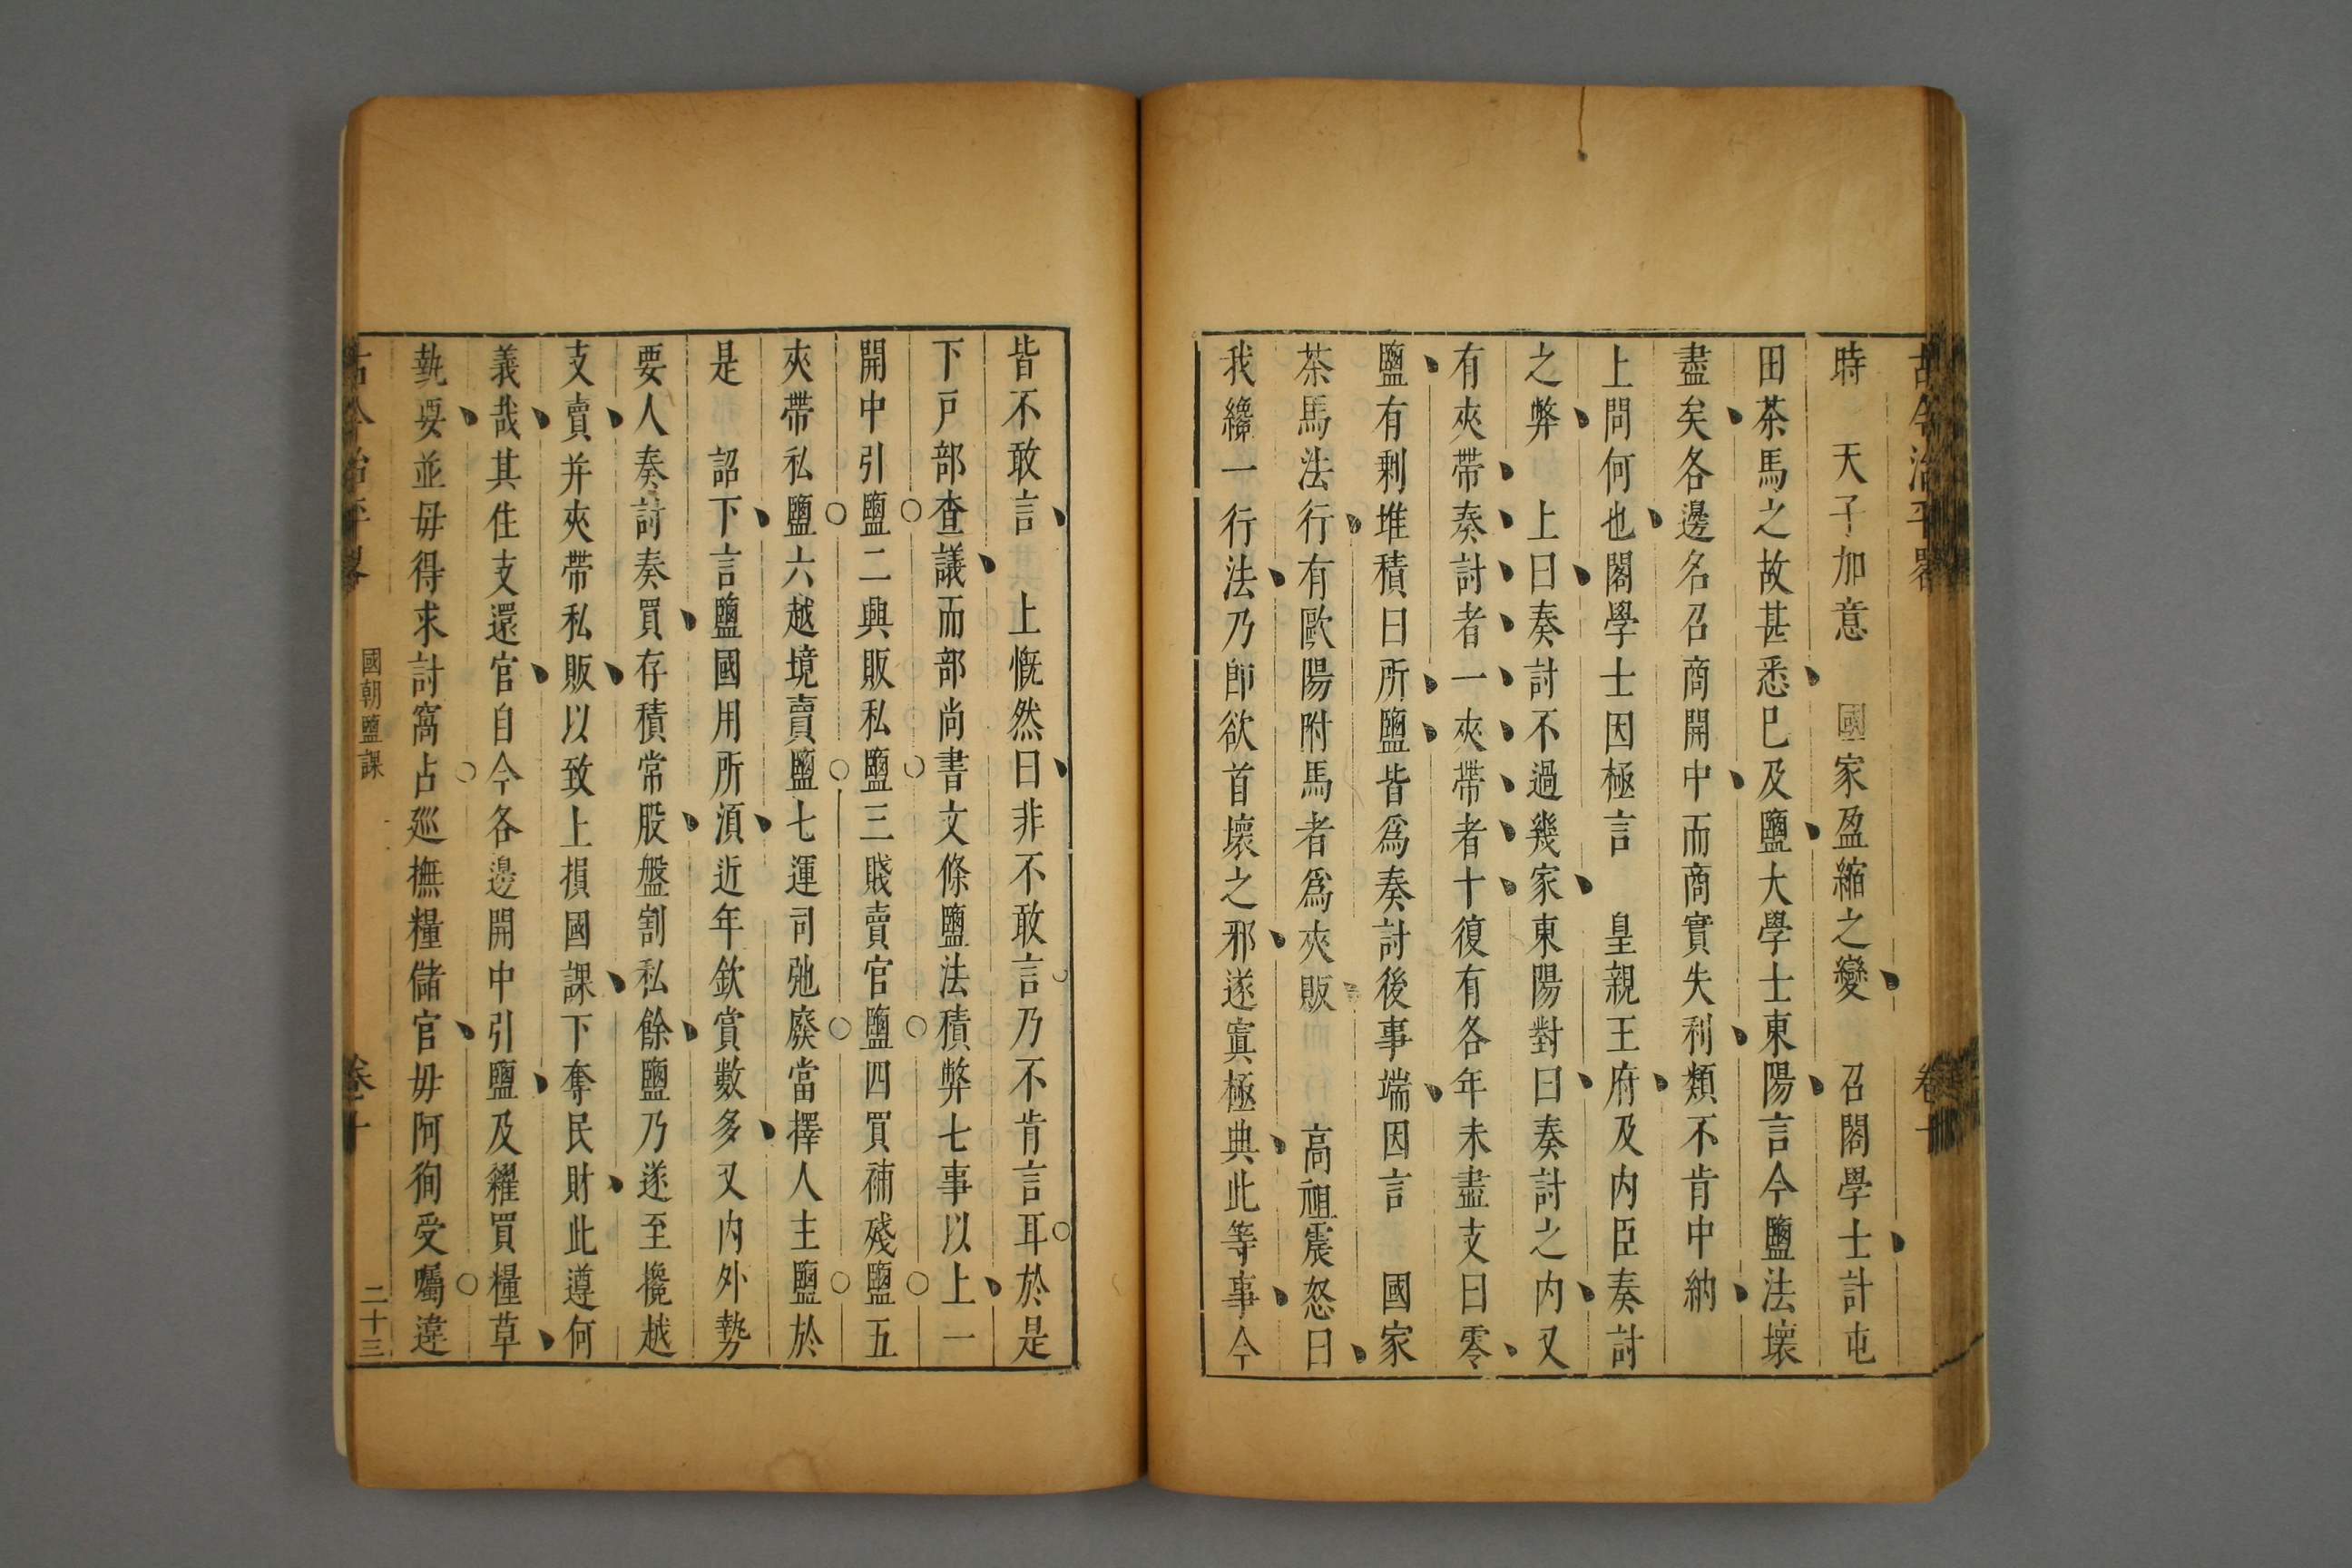 古今治平畧
卷十
時 天子加意 國家盈縮之變 召閣學士計屯
田茶馬之故甚悉已及鹽大學士東陽言今鹽法壞
盡矣各邊名召商開中而商實失利類不肯中納
上問何也閣學士因極言 皇親王府及内臣奏討
之弊 上曰奏討不過幾家東陽對曰奏討之内又
有夾帶奏討者一夾帶者十復有各年未盡支曰零
鹽有剩堆積曰所鹽皆爲奏討後事端因言 國家
茶馬法行有歐陽附馬者爲夾販 高祖震怒曰
我纔一行法乃卽欲首壞之邪遂寘極典此等事今
皆不敢言 上慨然曰非不敢言乃不肯言耳於是
下戸部查議而部尚書文條鹽法積弊七事以上一
開中引鹽二興販私鹽三賤賣官鹽四買補殘鹽五
夾帶私鹽六越境賣鹽七運司弛廢當擇人主鹽於
是 詔下言鹽國用所湏近年欽賞數多又内外勢
要人奏討奏買存積常股盤割私餘鹽乃遂至攙越
支賣并夾帶私販以致上損國課下奪民財此遵何
義哉其住支還官自今各邊開中引鹽及糴買糧草
埶要並毋得求討窩占廵撫糧儲官毋阿徇受囑違
古今治平畧
國朝鹽課
卷十
二十三